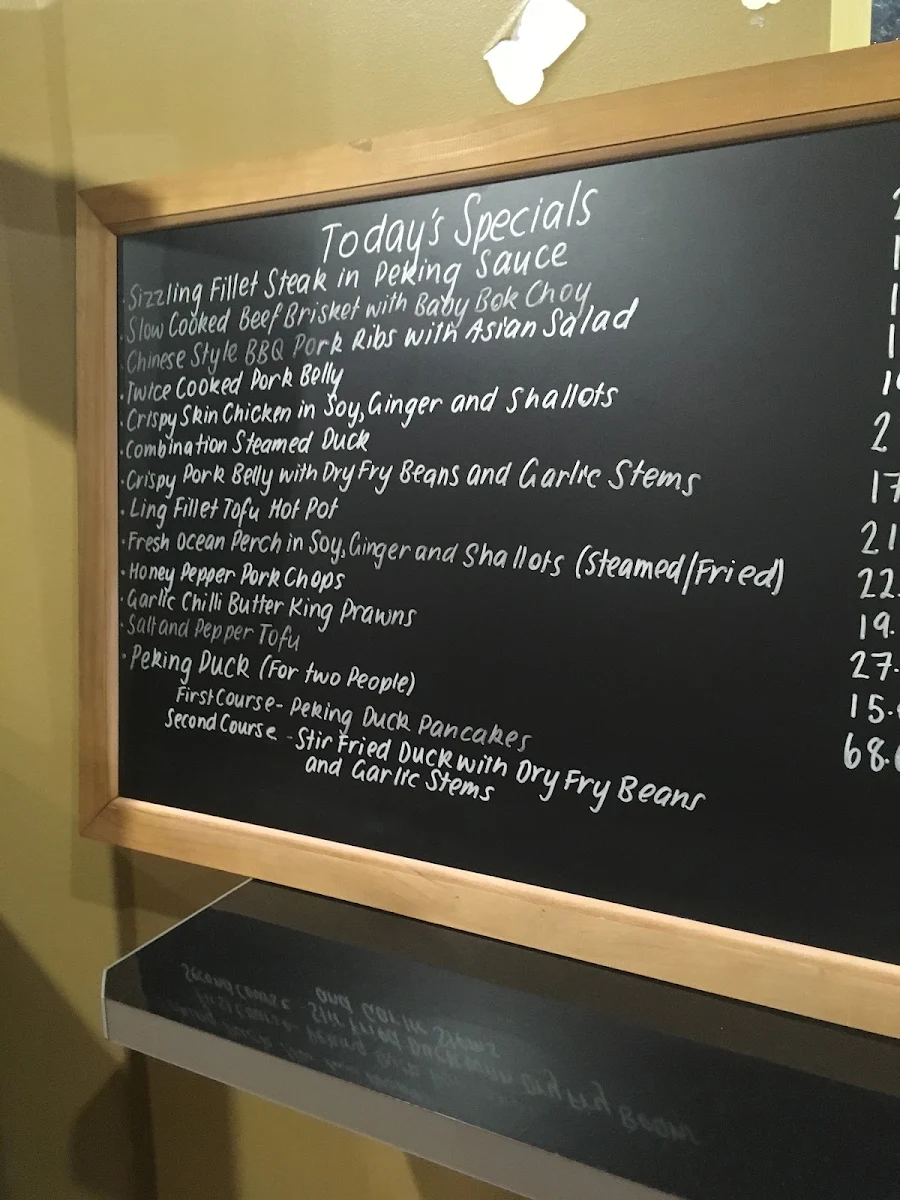 Today's Specials
· Sizzling Fillet Steak in Peking Sauce
· Slow Cooked Beef Brisket with Baby Bok Choy
· Chinese Style BBQ Pork Ribs with Asian Salad
· Twice Cooked Pork Belly
· Crispy Skin Chicken in Soy, Ginger and Shallots
· Combination Steamed Duck 2
· Crispy Pork Belly with Dry Fry Beans and Garlic Stems 17
· Ling Fillet Tofu Hot Pot 21
· Fresh Ocean Perch in Soy, Ginger and Shallots (Steamed/Fried) 22.
· Honey Pepper Pork Chops 19.
· Garlic Chilli Butter King Prawns 27.
· Salt and Pepper Tofu 15.
· Peking Duck (For two People) 68.
First Course - Peking Duck Pancakes
Second Course - Stir Fried Duck with Dry Fry Beans
and Garlic Stems